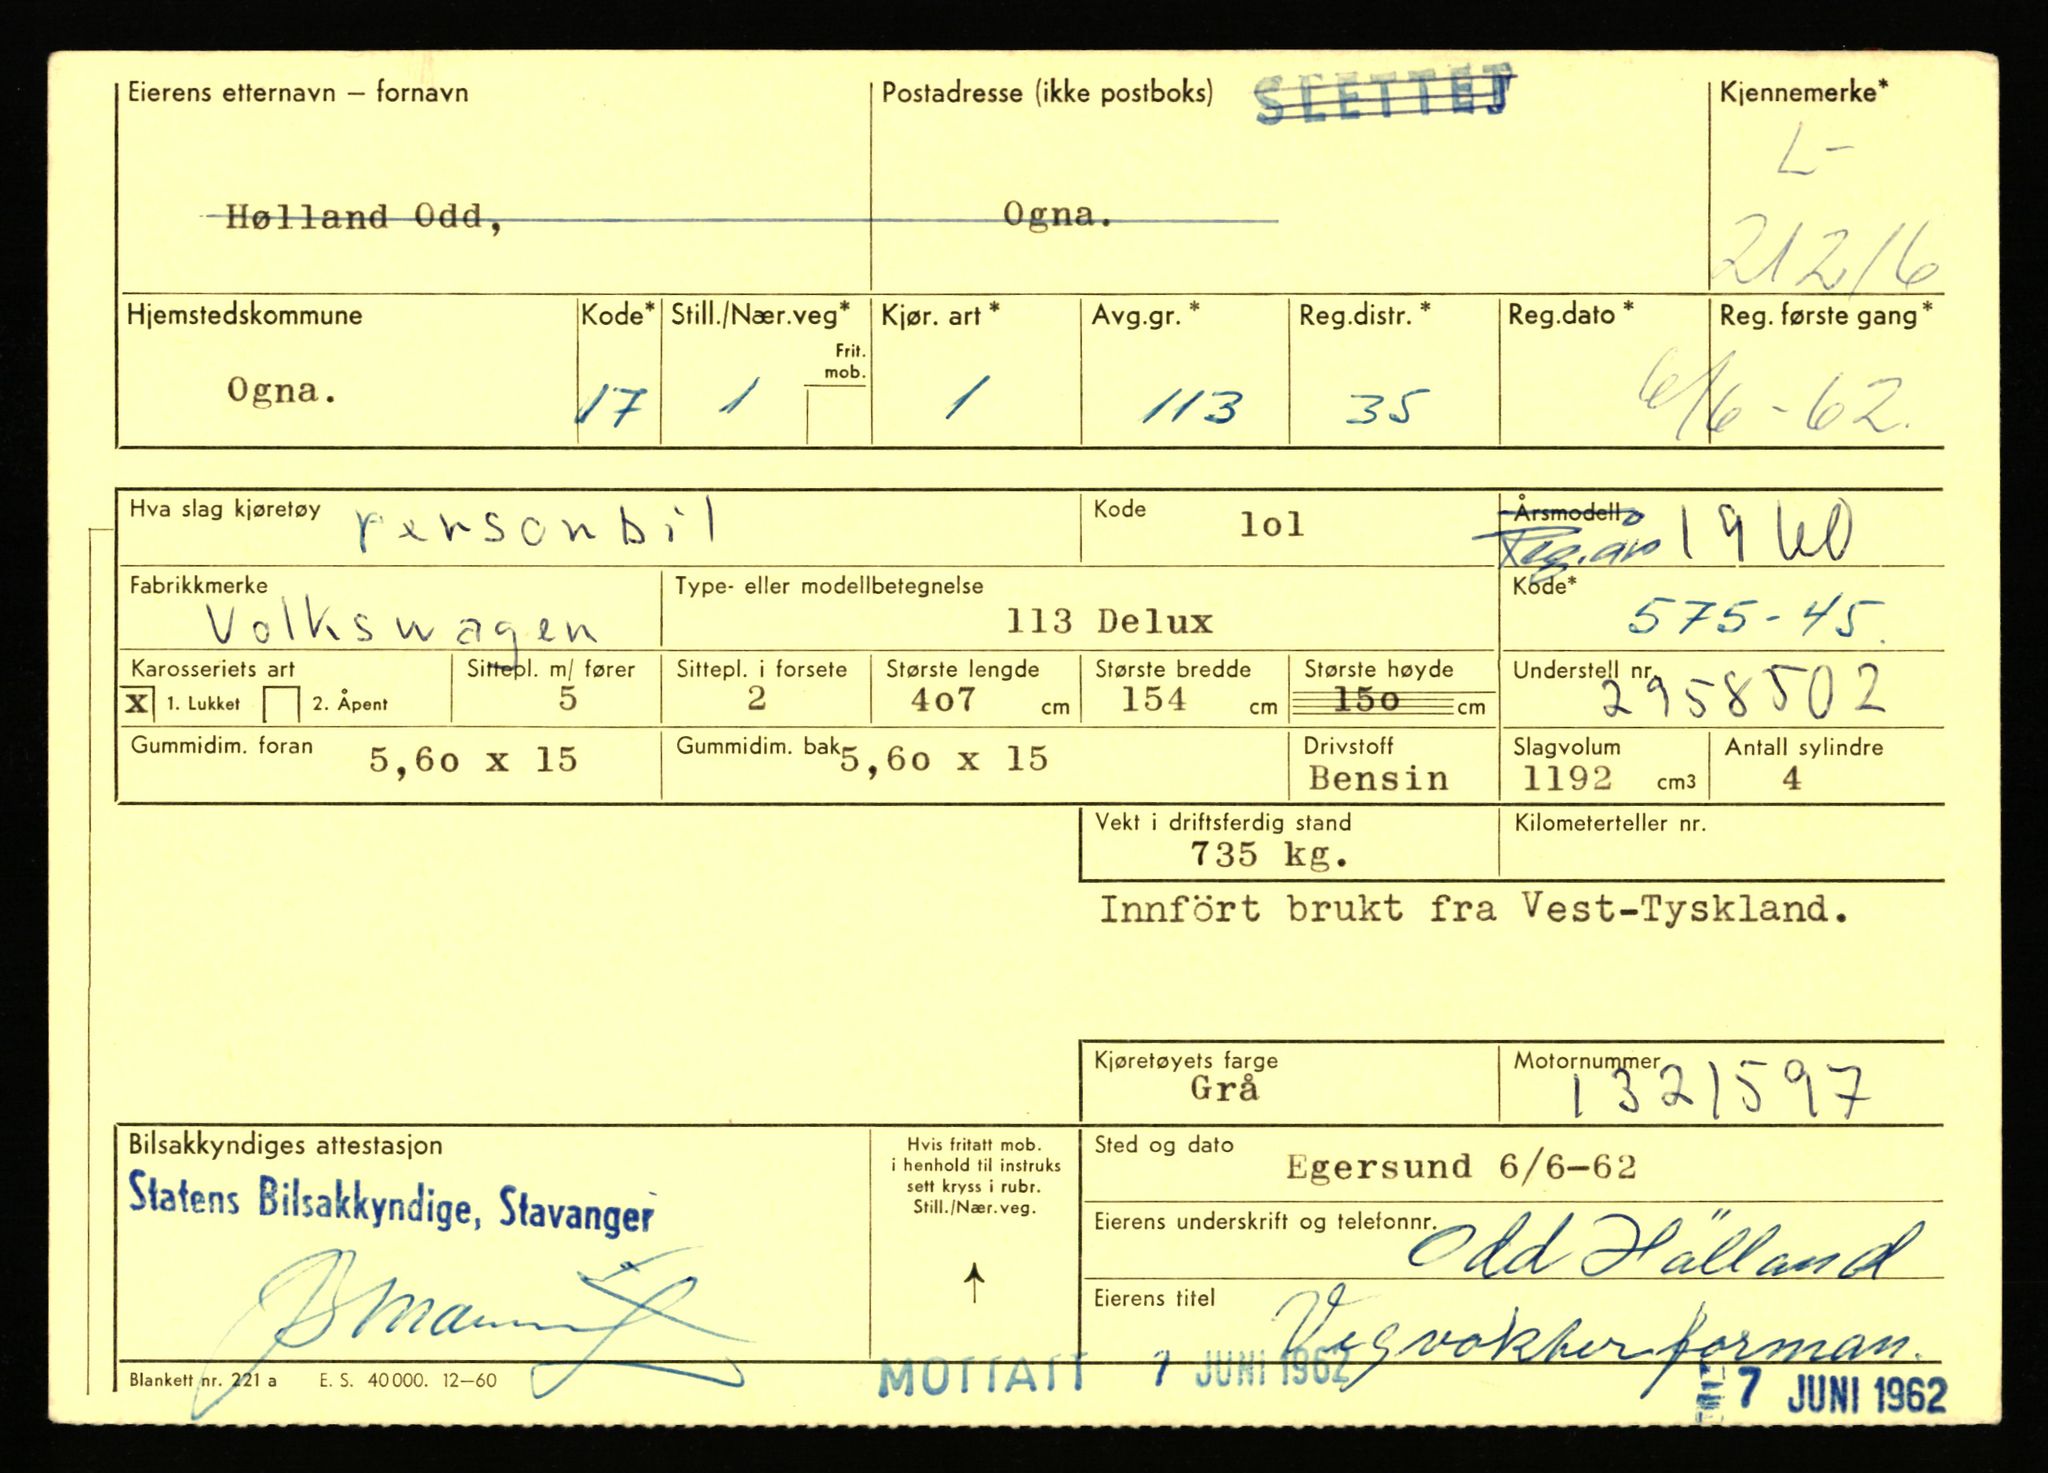 Eierens etternavn – fornavn Postadresse (ikke postboks) SLETTET Kjennemerke*
L-
Hølland Odd, Ogna.
21216
Hjemstedskommune Kode* Still./Nær.veg* Kjør. art* Avg.gr.* Reg.distr.* Reg.dato* Reg. første gang*
Frit.
mob.
Ogna. 17 1 1 113 35 6/6-62.
Hva slag kjøretøy personbil Kode lol Årsmodell 1960
Reg.år
Fabrikkmerke Type- eller modellbetegnelse Kode*
Volkswagen 113 Delux 575-45.
Karosseriets art Sittepl. m/ fører Sittepl. i forsete Største lengde Største bredde Største høyde Understell nr.
X 1. Lukket 2. Åpent 5 2 4o7 cm 154 cm 15o cm 2958502
Gummidim. foran 5,6o x 15 Gummidim. bak 5,6o x 15 Drivstoff Slagvolum Antall sylindre
Bensin 1192 cm3 4
Vekt i driftsferdig stand Kilometerteller nr.
735 kg.
Innfört brukt fra Vest-Tyskland.
Kjøretøyets farge Motornummer
Grå 1321597
Bilsakkyndiges attestasjon Hvis fritatt mob.
i henhold til instruks
sett kryss i rubr.
Still./Nær.veg.
Sted og dato Egersund 6/6-62
Statens Bilsakkyndige, Stavanger
Eierens underskrift og telefonnr. Odd Hålland
Eierens titel Vegvokterformann.
Blankett nr. 221 a E. S. 40000. 12–60 MOTTATT 7 JUNI 1962 7 JUNI 1962